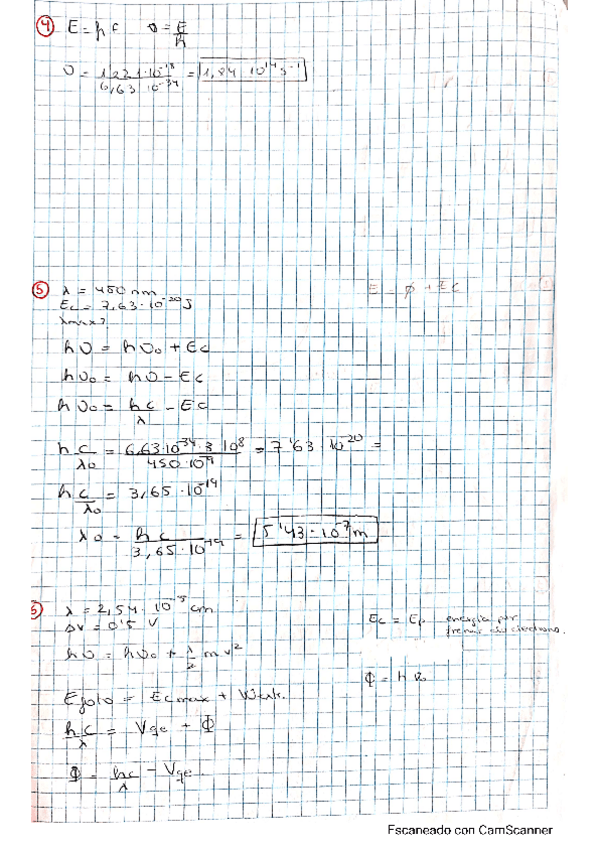 ④ E = h f   υ = E/h
υ = 1,221·10⁻¹⁸ / 6,63·10⁻³⁴ = 1,84 10¹⁴ s⁻¹
⑤ λ = 450 nm   E = φ + Ec
Ec = 7,63·10⁻²⁰ J
λmax?
hυ = hυ₀ + Ec
hυ₀ = hυ - Ec
hυ₀ = hc/λ - Ec
h c/λ₀ = 6,63·10⁻³⁴·3 10⁸ / 450·10⁻⁹ = 7'63 10²⁰ =
h c/λ₀ = 3,65·10⁻¹⁹
λ₀ = h c / 3,65·10⁻¹⁹ = 5'43·10⁻⁷ m
λ = 2,54·10⁻⁵ cm   Ec = Ep energía por
ΔV = 0'5 V   frenar
hυ = hυ₀ + 1/2 m v²
Φ = h υ₀
Efoto = Ecmax + Wext.
hc/λ = Vqe + Φ
Φ = hc/λ - Vqe
Escaneado con CamScanner